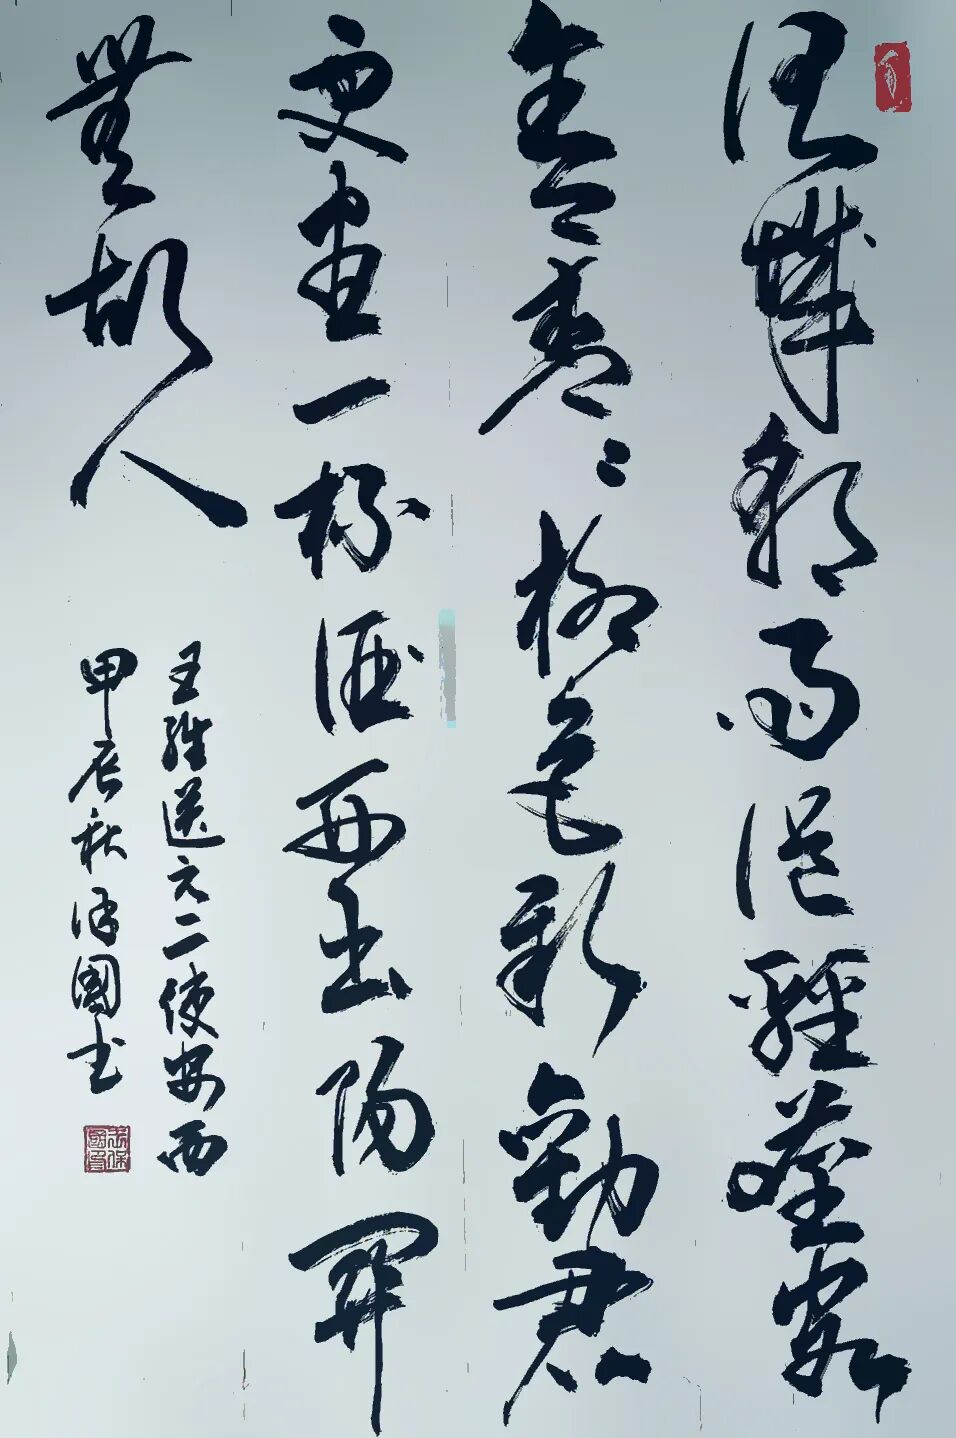 渭城朝雨浥輕塵客
舍青〻柳色新勸君
更盡一杯酒西出陽關
無故人
王維送元二使安西
甲辰秋保國書